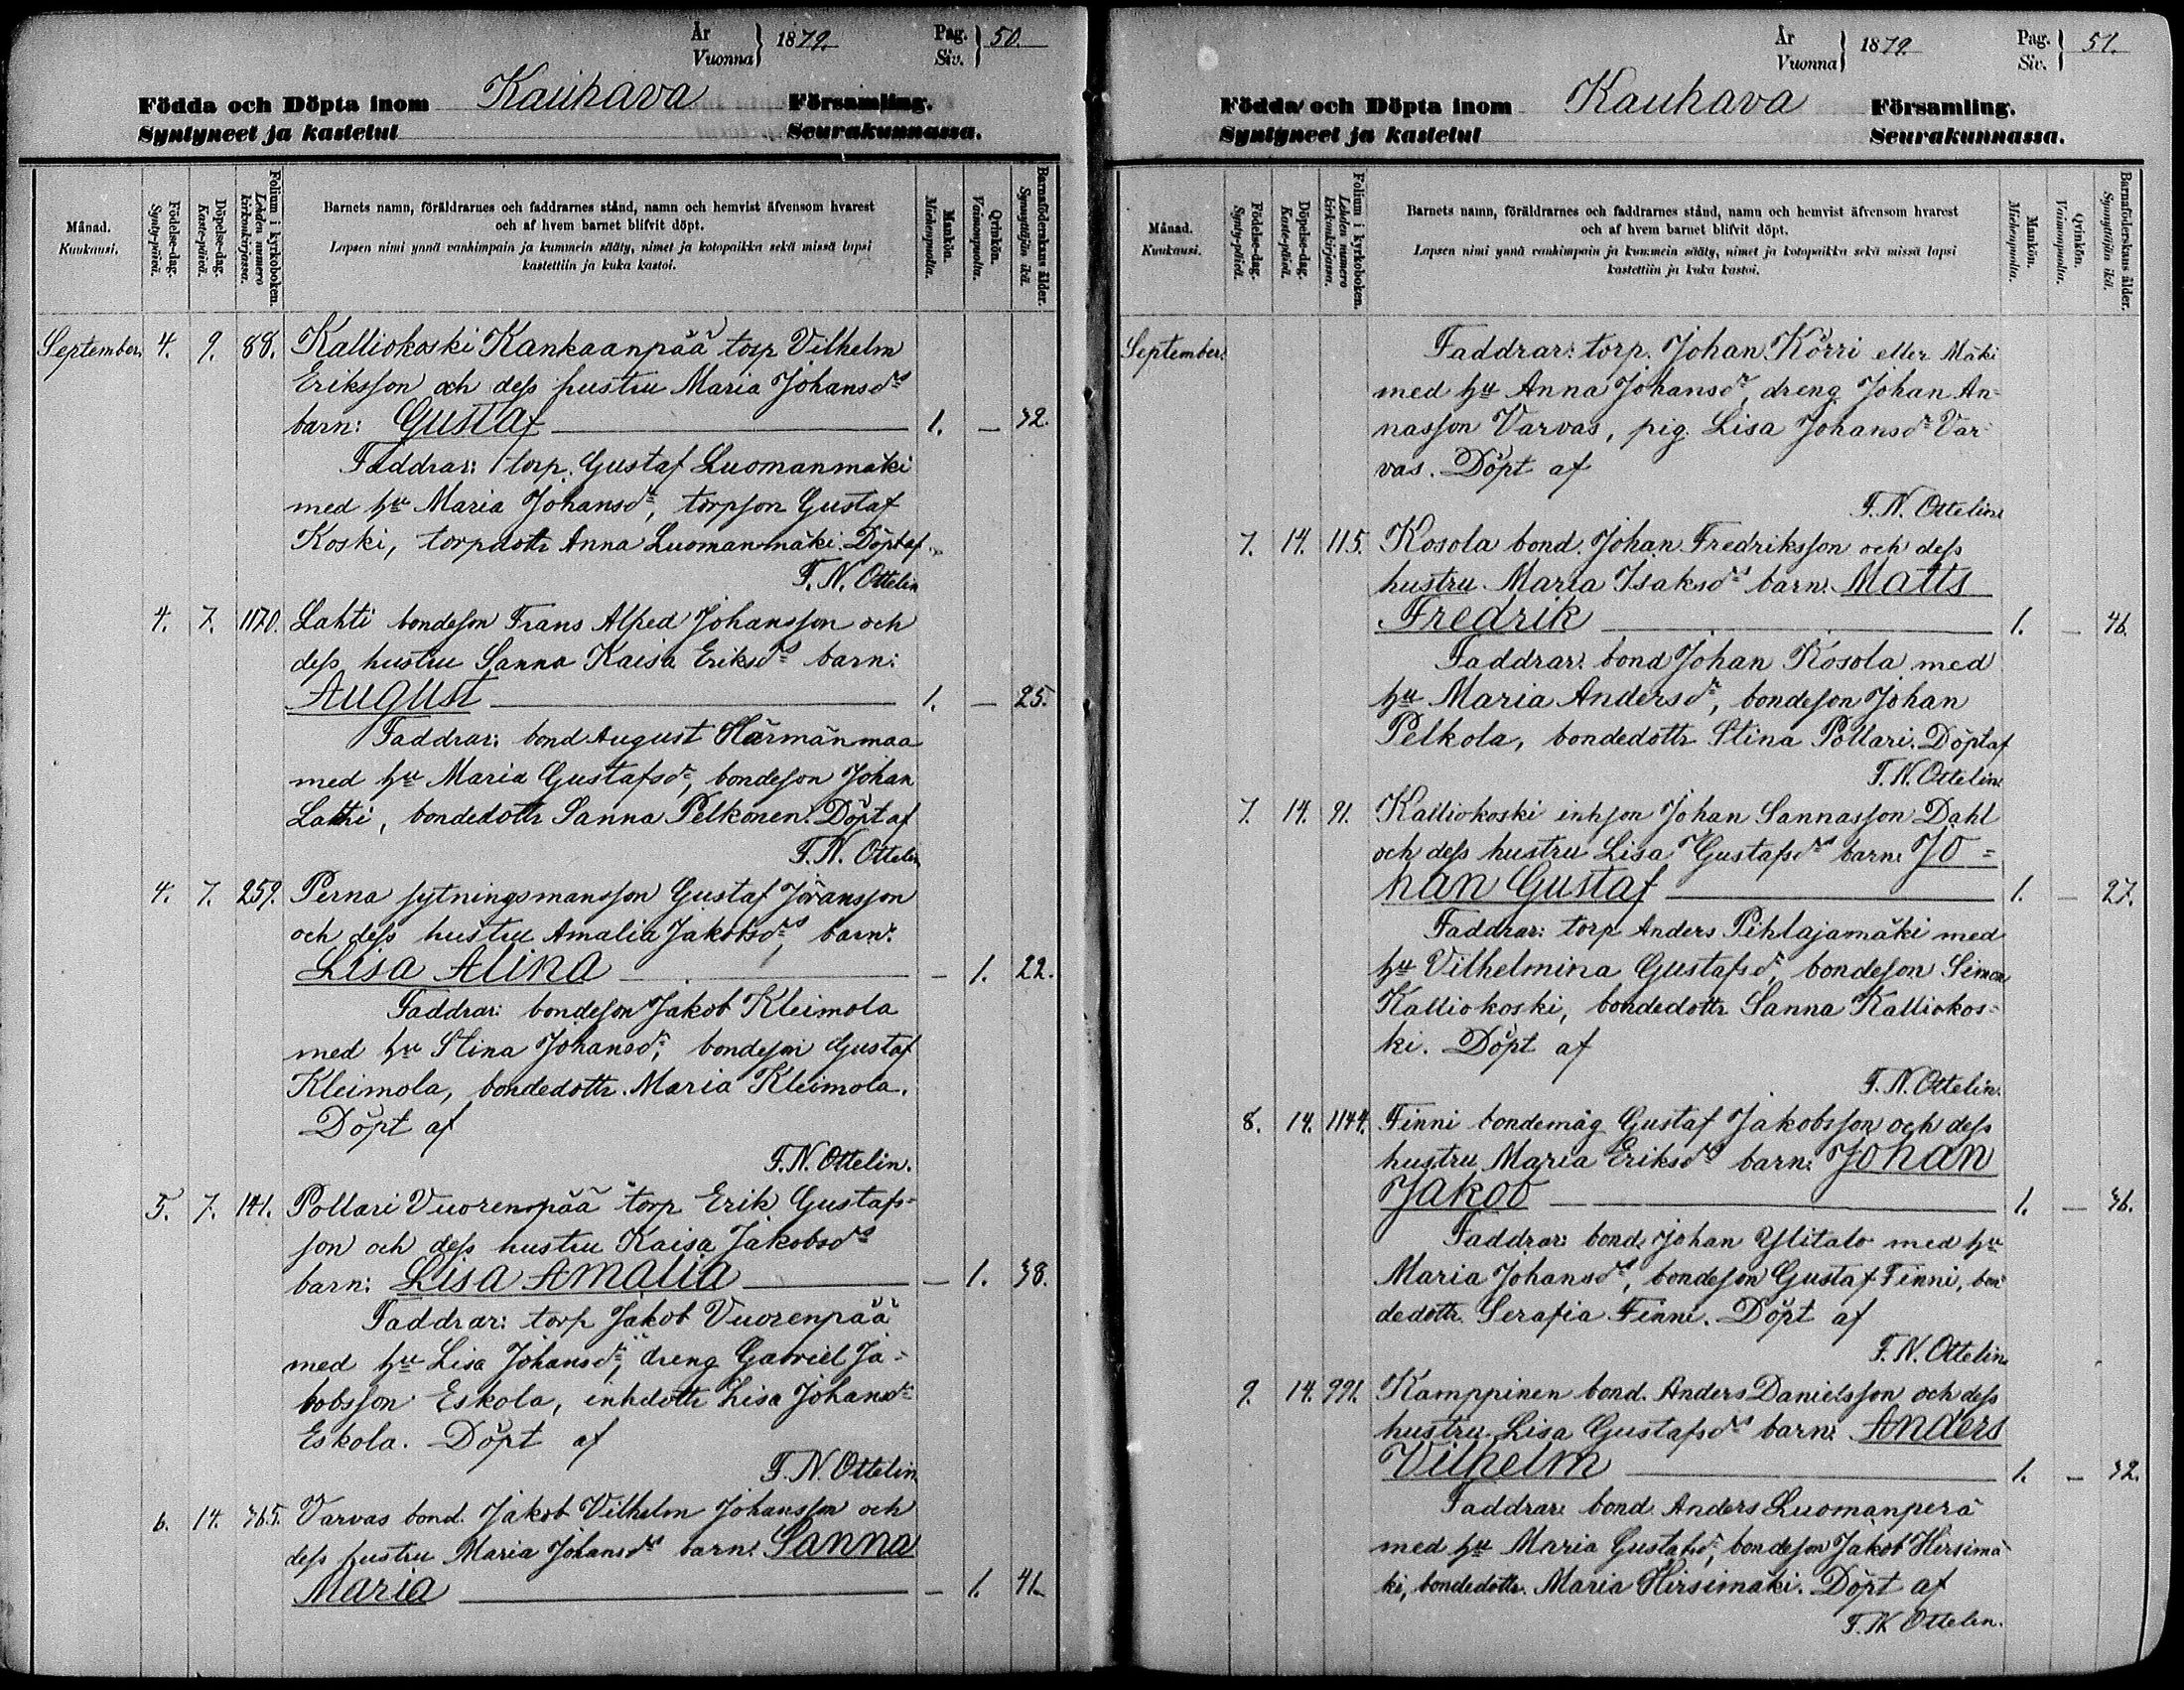 År
Vuonna } 1879. Pag.
Siv. } 50.
Födda och Döpta inom Kauhava Församling.
Syntyneet ja kastetut Seurakunnassa.
Månad.
Kuukausi.
Födelse-dag.
Synty-päivä.
Döpelse-dag.
Kaste-päivä.
Folium i kyrkoboken.
Lehden numero kirkonkirjassa.
Barnets namn, föräldrarnes och faddrarnes stånd, namn och hemvist äfvensom hvarest
och af hvem barnet blifvit döpt.
Lapsen nimi ynnä vanhimpain ja kummein sääty, nimet ja kotopaikka sekä missä lapsi
kastettiin ja kuka kastoi.
Mankön.
Miehenpuolta.
Qvinkön.
Vaimonpuolta.
Barnaföderskans ålder.
Synnyttäjän ikä.
September. 4. 9. 88. Kalliokoski Kankaanpää torp Vilhelm
Eriksson och dess hustru Maria Johansdrs
barn: Gustaf 1. — 32.
Faddrar: torp. Gustaf Luomanmäki
med hu Maria Johansdr, torpson Gustaf
Koski, torpdottr Anna Luomanmäki. Döpt af
F. N. Ottelin
4. 7. 1170. Lahti bondeson Frans Alfred Johansson och
dess hustru Sanna Kaisa Eriksdrs barn:
August 1. — 25.
Faddrar: bond August Härmänmaa
med hu Maria Gustafsdr, bondeson Johan
Lahti, bondedottr Sanna Pelkonen. Döpt af
F. N. Ottelin
4. 7. 259. Perna sytningsmansson Gustaf Jöransson
och dess hustru Amalia Jakobsdrs barn:
Lisa Alina — 1. 22.
Faddrar: bondeson Jakob Kleimola
med hu Stina Johansdr, bondeson Gustaf
Kleimola, bondedottr. Maria Kleimola.
Döpt af
F. N. Ottelin.
5. 7. 141. Pollari Vuorenpää torp Erik Gustafs-
son och dess hustru Kaisa Jakobsdrs
barn: Lisa Amalia — 1. 38.
Faddrar: torp Jakob Vuorenpää
med hu Lisa Johansdr, dreng Gabriel Ja-
bobsson Eskola, inhdottr Lisa Johansdr
Eskola. Döpt af
F. N. Ottelin
6. 14. 365. Varvas bond. Jakob Vilhelm Johansson och
dess hustru Maria Johansdrs barn: Sanna
Maria — 1. 41.
År
Vuonna } 1879. Pag.
Siv. } 51.
Födda och Döpta inom Kauhava Församling.
Syntyneet ja kastetut Seurakunnassa.
Månad.
Kuukausi.
Födelse-dag.
Synty-päivä.
Döpelse-dag.
Kaste-päivä.
Folium i kyrkoboken.
Lehden numero kirkonkirjassa.
Barnets namn, föräldrarnes och faddrarnes stånd, namn och hemvist äfvensom hvarest
och af hvem barnet blifvit döpt.
Lapsen nimi ynnä vanhimpain ja kummein sääty, nimet ja kotopaikka sekä missä lapsi
kastettiin ja kuka kastoi.
Mankön.
Miehenpuolta.
Qvinkön.
Vaimonpuolta.
Barnaföderskans ålder.
Synnyttäjän ikä.
September. Faddrar: torp. Johan Körri eller Mäki
med hu Anna Johansdr, dreng Johan An-
nasson Varvas, pig. Lisa Johansdr Var-
vas. Döpt af
F. N. Ottelin
7. 14. 115. Kosola bond. Johan Fredriksson och dess
hustru Maria Isaksdrs barn: Matts
Fredrik 1. — 46.
Faddrar: bond Johan Kosola med
hu Maria Andersdr, bondeson Johan
Pelkola, bondedottr Stina Pollari. Döpt af
F. N. Ottelin.
7. 14. 91. Kalliokoski inhson Johan Sannasson Dahl
och dess hustru Lisa Gustafsdrs barn: Jo-
han Gustaf 1. — 27.
Faddrar: torp Anders Pihlajamäki med
hu Vilhelmina Gustafsdr, bondeson Simon
Kalliokoski, bondedottr Sanna Kalliokos-
ki. Döpt af
F. N. Ottelin.
8. 14. 1144. Finni bondemåg Gustaf Jakobsson och dess
hustru Maria Eriksdrs barn: Johan
Jakob 1. — 36.
Faddrar: bond. Johan Ylitalo med hu
Maria Johansdr, bondeson Gustaf Finni, bon
dedottr. Serafia Finni. Döpt af
F. N. Ottelin
9. 14. 991. Kamppinen bond. Anders Danielsson och dess
hustru Lisa Gustafsdrs barn: Anders
Vilhelm 1. — 32.
Faddrar: bond. Anders Luomanperä
med hu Maria Gustafsdr, bondeson Jakob Hirsimä
ki, bondedottr. Maria Hirsimäki. Döpt af
F. N. Ottelin.